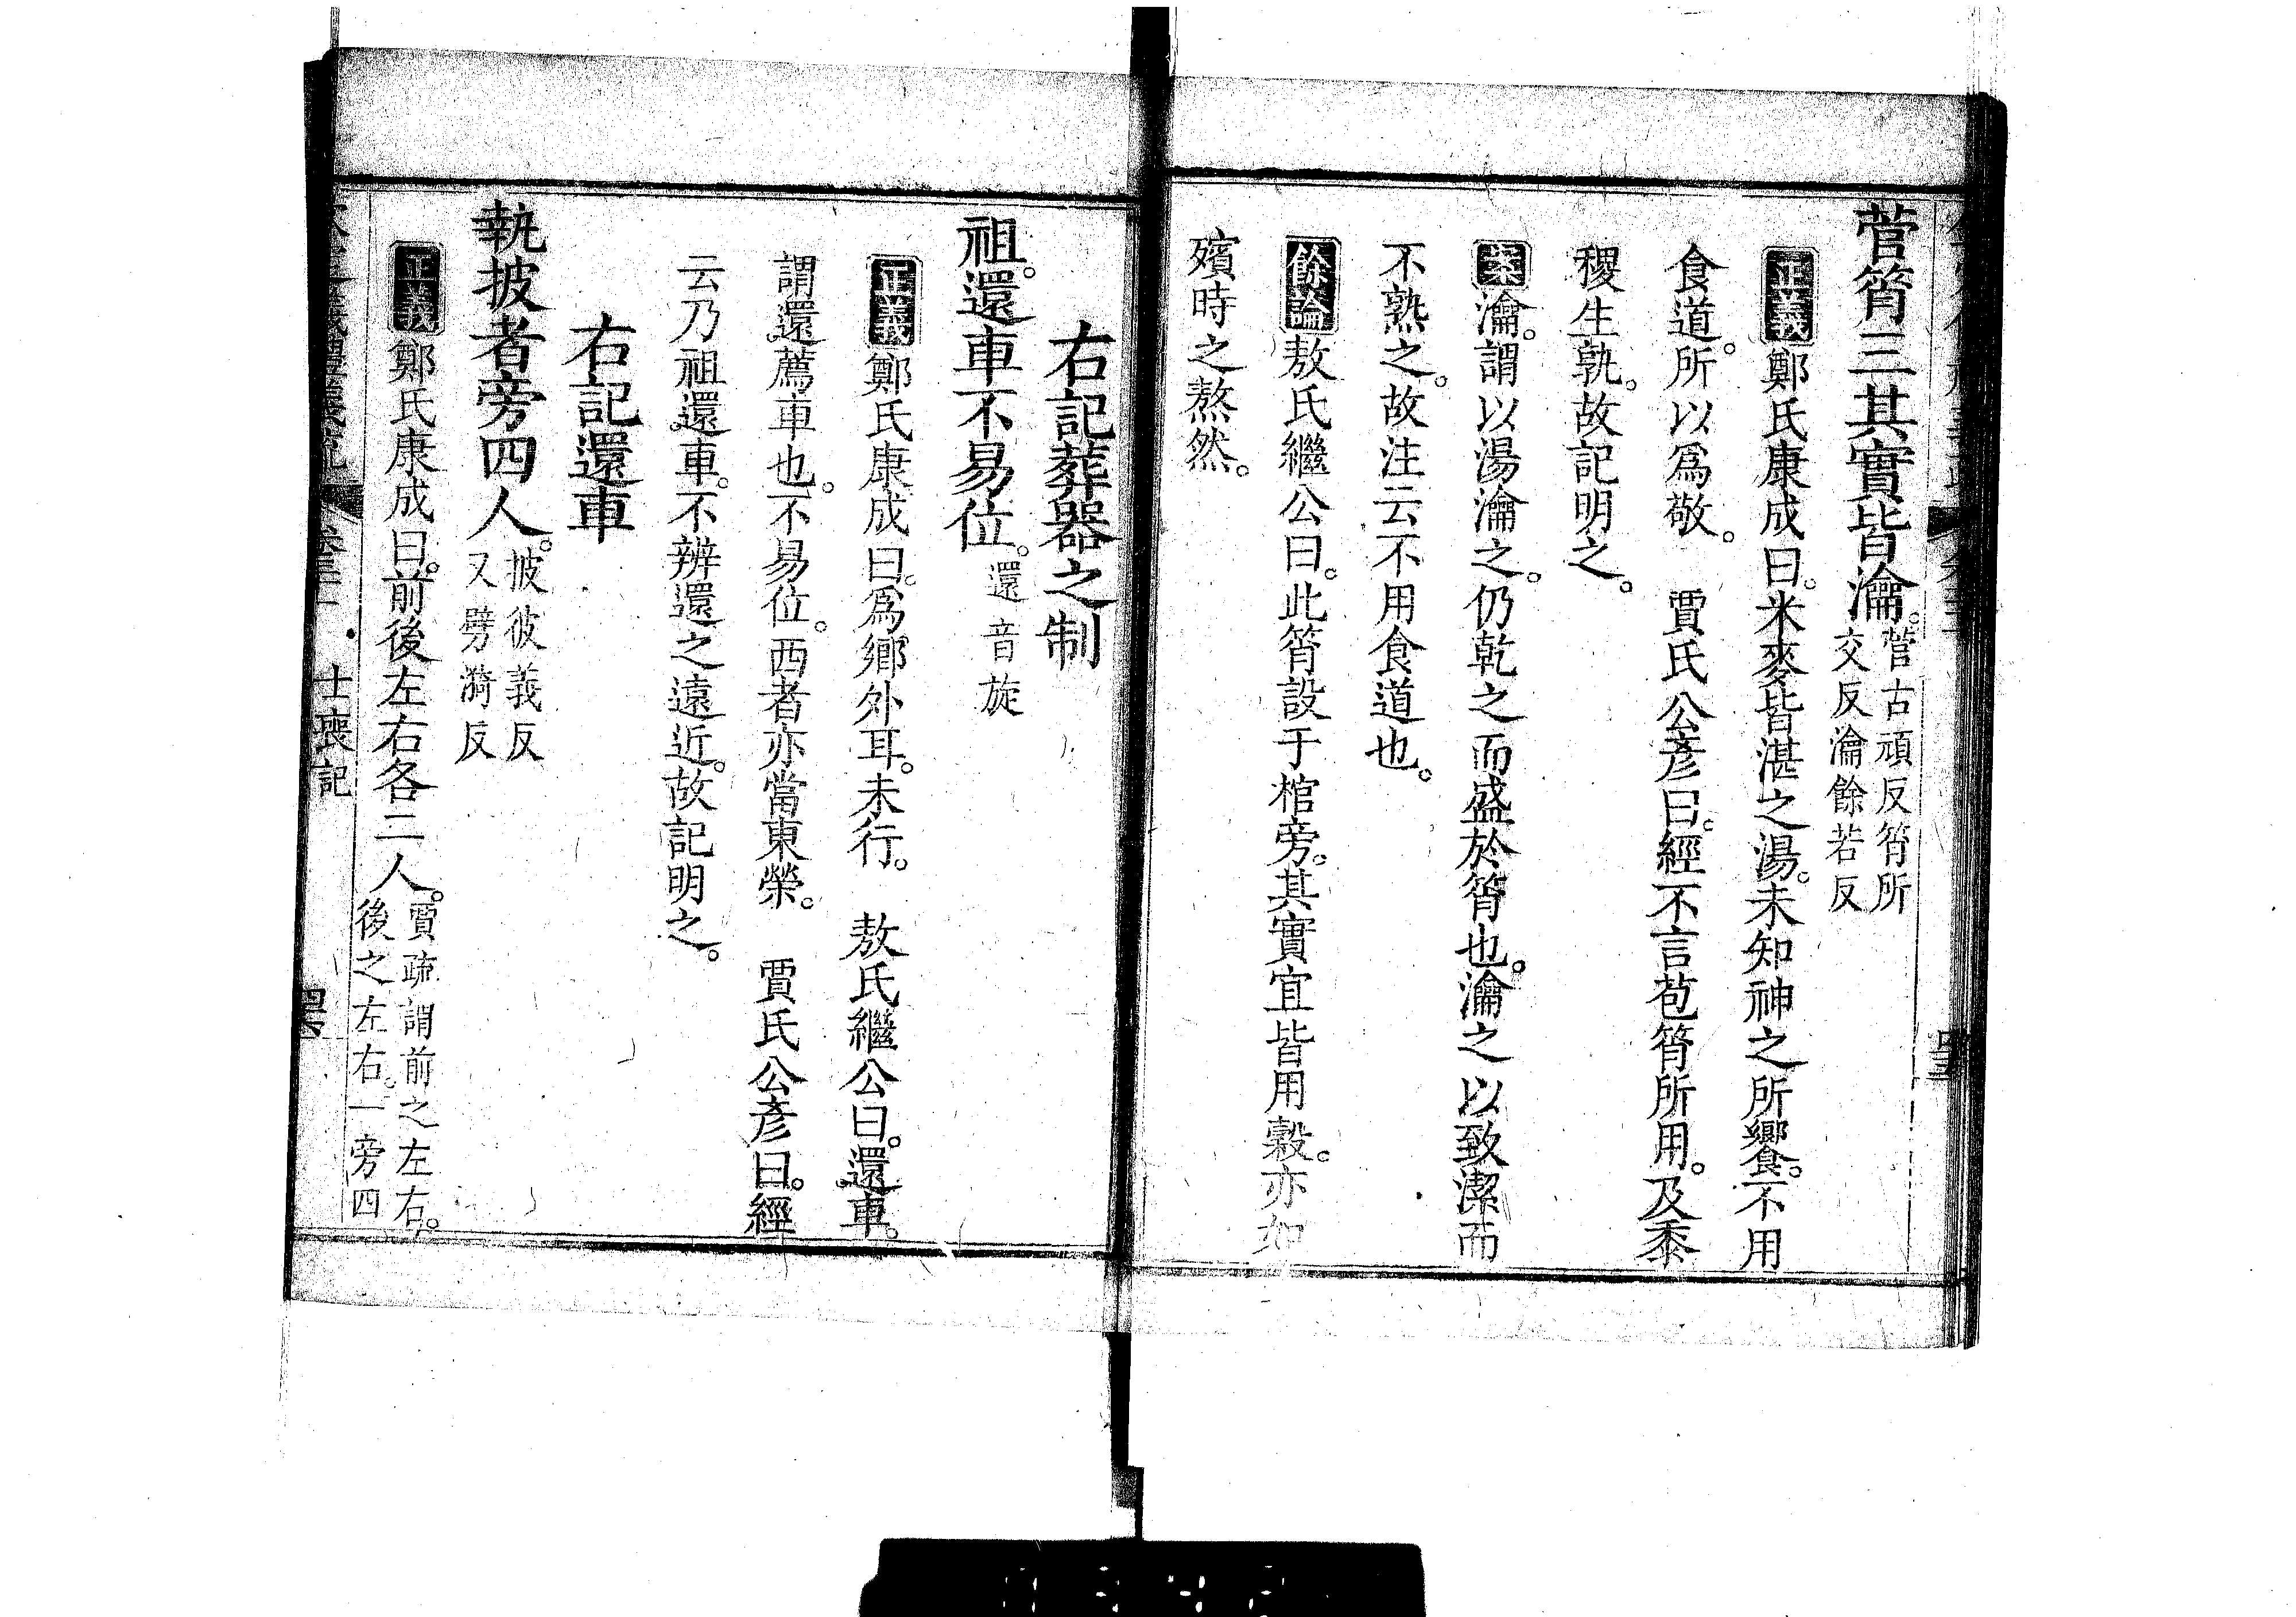 菅筲三其實皆瀹。菅古頑反筲所
交反瀹餘若反
正義鄭氏康成曰。米麥皆湛之湯。未知神之所饗。不用
食道。所以爲敬。　賈氏公彥曰。經不言苞筲所用。及黍
稷生孰。故記明之。
案瀹。謂以湯瀹之。仍乾之而盛於筲也。瀹之以致潔而
不熟之。故注云不用食道也。
餘論敖氏繼公曰。此筲設于棺旁。其實宜皆用穀。亦如
殯時之熬然。
右記葬器之制
祖。還車不易位。還音旋
正義鄭氏康成曰。爲鄉外耳。未行。　敖氏繼公曰。還車。
謂還薦車也。不易位。西者亦當東榮。　賈氏公彥曰。經
云乃祖還車。不辨還之遠近。故記明之。
右記還車
執披者旁四人。披彼義反
又劈漪反
正義鄭氏康成曰。前後左右各二人。賈疏謂前之左右。
後之左右。一旁四
士喪記